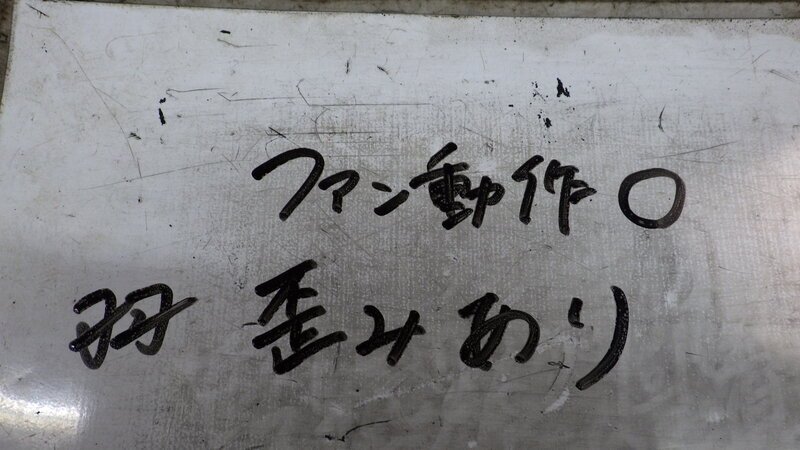 ファン動作○
羽 歪みあり